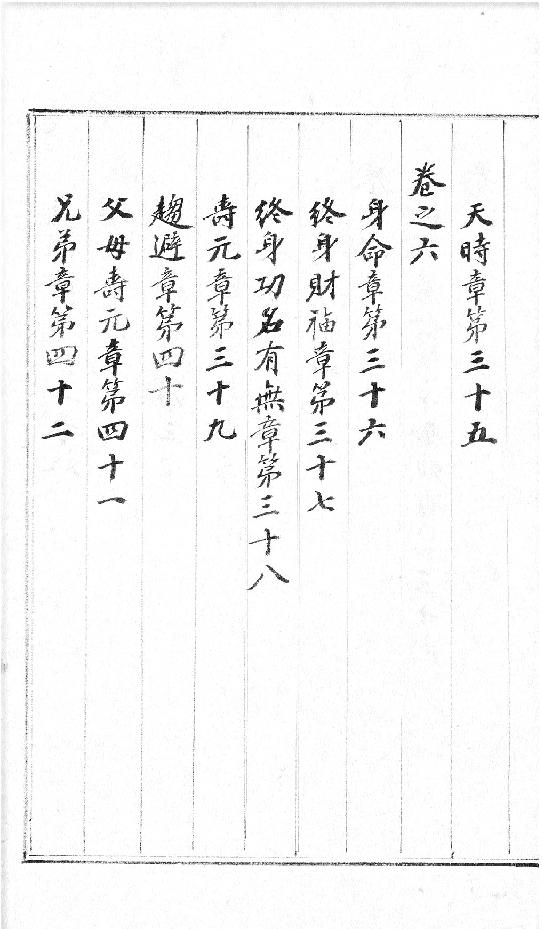 天時章第三十五
卷之六
身命章第三十六
終身財福章第三十七
終身功名有無章第三十八
壽元章第三十九
趨避章第四十
父母壽元章第四十一
兄弟章第四十二